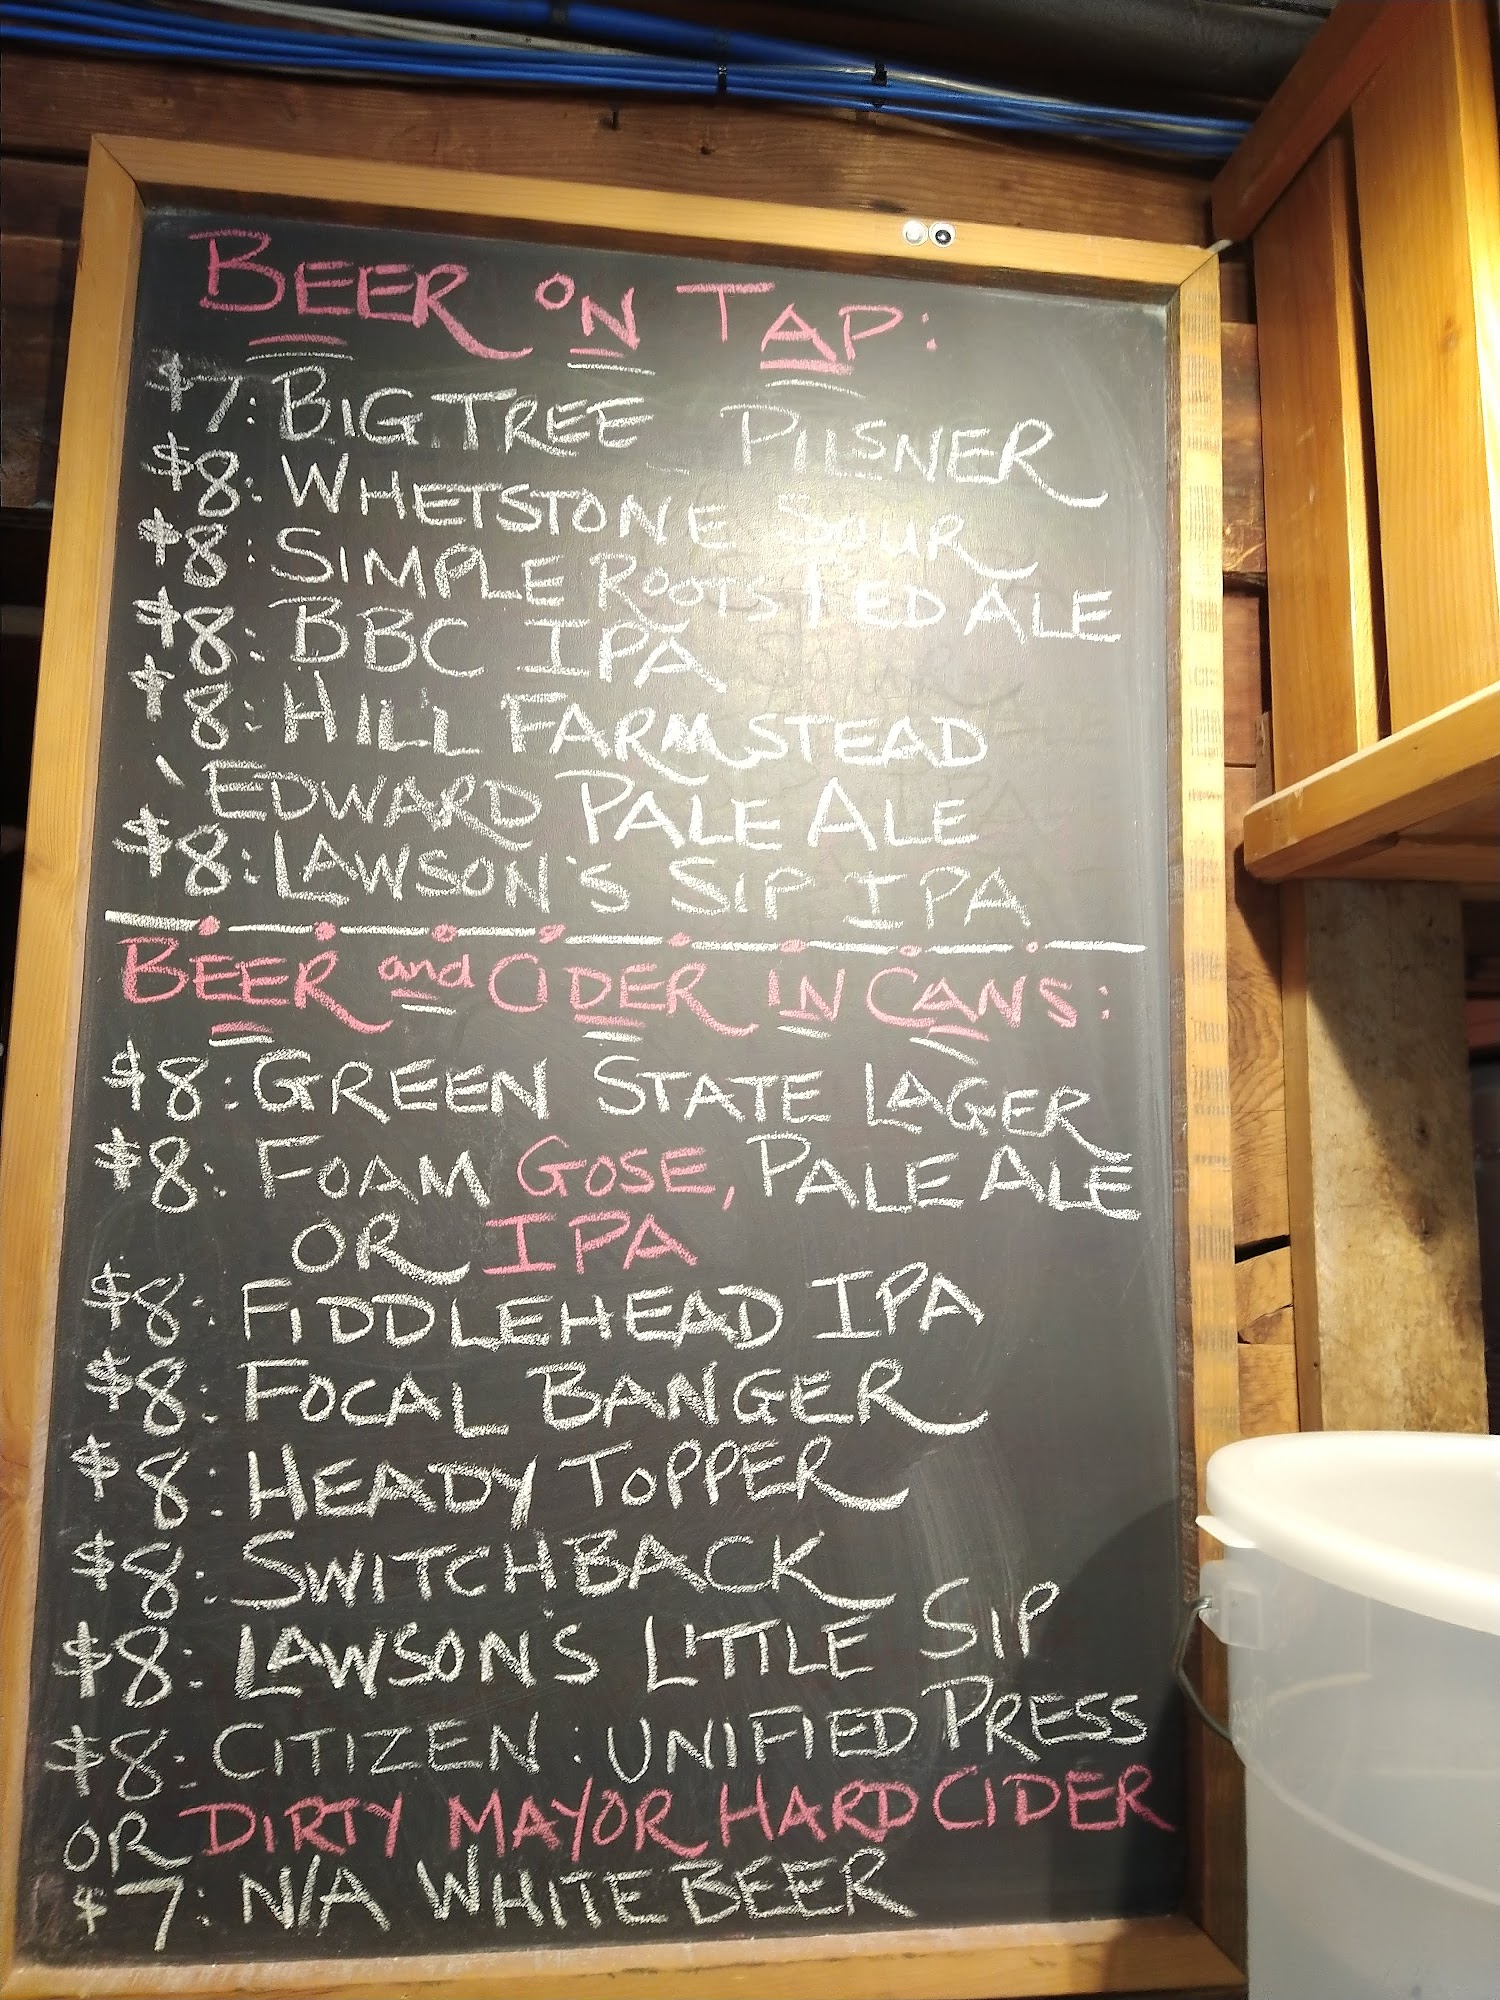 BEER ON TAP:
$7: BIG TREE PILSNER
$8: WHETSTONE SOUR
$8: SIMPLE ROOTS TED ALE
$8: BBC IPA
$8: HILL FARMSTEAD
EDWARD PALE ALE
$8: LAWSON'S SIP IPA
BEER and CIDER IN CANS:
$8: GREEN STATE LAGER
$8: FOAM GOSE, PALE ALE
OR IPA
$8: FIDDLEHEAD IPA
$8: FOCAL BANGER
$8: HEADY TOPPER
$8: SWITCHBACK
$8: LAWSONS LITTLE SIP
$8: CITIZEN: UNIFIED PRESS
OR DIRTY MAYOR HARD CIDER
$7: N/A WHITE BEER